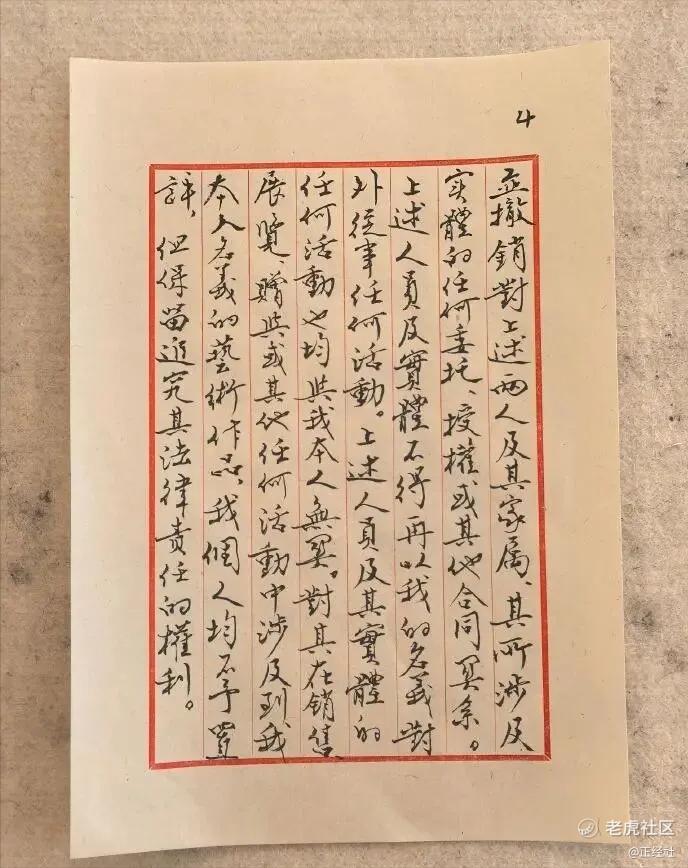 4
並撤銷對上述两人及其家属、其所涉及
实體的任何委托、授權或其他合同関系。
上述人員及實體不得再以我的名義對
外從事任何活動。上述人員及其實體的
任何活動也均與我本人無関。對其在銷售
展覽、贈與或其他任何活動中涉及到我
本人名義的藝術作品,我個人均不予置
評,但保留追究其法律責任的權利。
老虎社区
@正经社